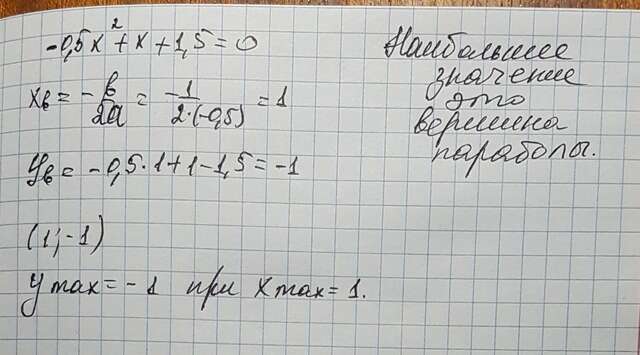 -0,5x² + x + 1,5 = 0
xв = - в/2a = -1/2·(-0,5) = 1
yв = -0,5·1+1-1,5 = -1
(1; -1)
y max = -1 при x max = 1.
Наибольшее
значение
это
вершина
параболы.